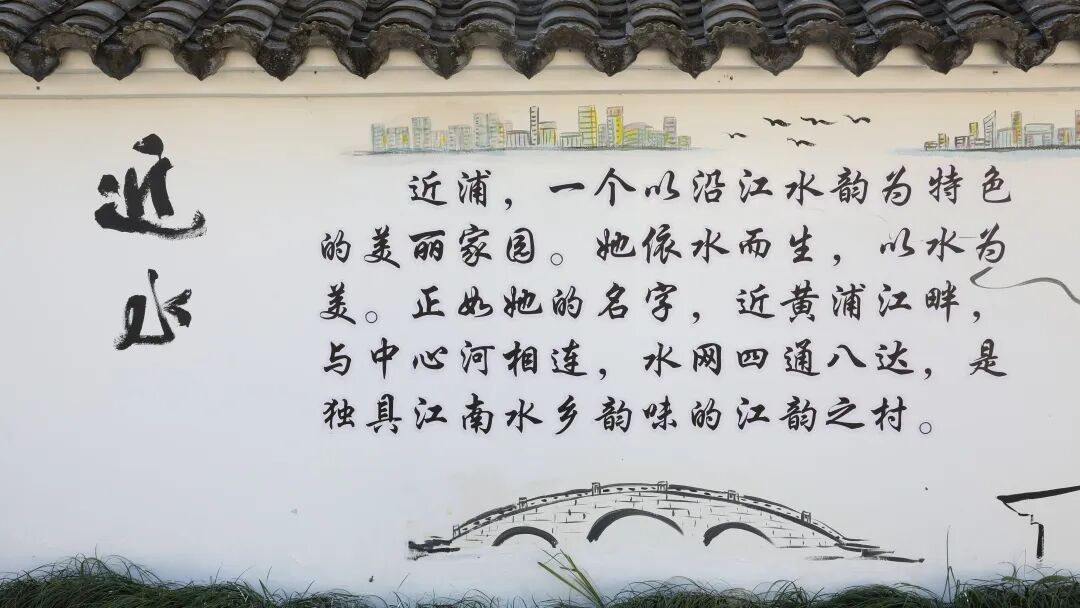 近水
近浦，一个以沿江水韵为特色
的美丽家园。她依水而生，以水为
美。正如她的名字，近黄浦江畔，
与中心河相连，水网四通八达，是
独具江南水乡韵味的江韵之村。